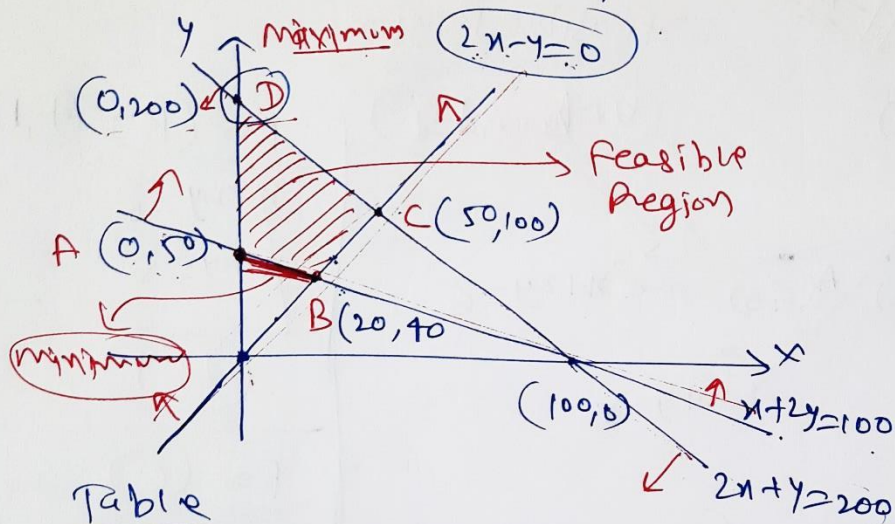 Y Maximum 2x-y=0
(0,200) D
Feasible
Region
C (50,100)
A (0,50)
B (20,40
Minimum
X
(100,0)
x+2y=100
2x+y=200
Table